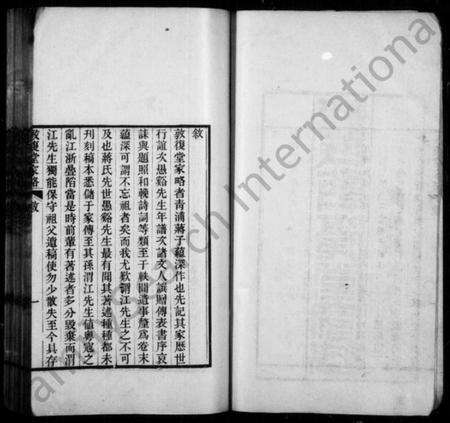 敘
敦復堂家略者青浦蔣子蘊深作也先記其家歷世
行誼次愚谿先生年譜次諸文人誄贈傳表書序哀
誄與題照和輓詩詞等類至于軼聞遺事釐爲卷末
蘊深可謂不忘祖者矣而我尤歎謂江先生之不可
及也蔣氏先世愚谿先生最有聞其著述種種都未
刊刻稿本悉儲于家傳至其孫渭江先生値粵寇之
亂江浙疊陷當是時前輩有著述者多分毀棄而渭
江先生獨能保守祖父遺稿使勿少散失至今具存
敦復堂家略 敘 一
International